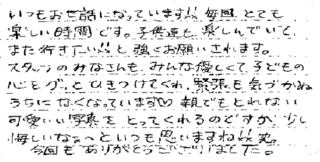 いつもお世話になっています!! 毎回、とても
楽しい時間です。子供達も楽しんでいて
また行きたい!!と強くお願いされます。
スタッフのみなさんも、みんな優しくて子どもの
心をグッとひきつけてくれ、緊張も気づかぬ
うちになくなっています♡親でもとれない
可愛い写真をとってくれるのですが、少し
悔しいな〜といつも思いますね!!笑。
今回もありがとうございました。